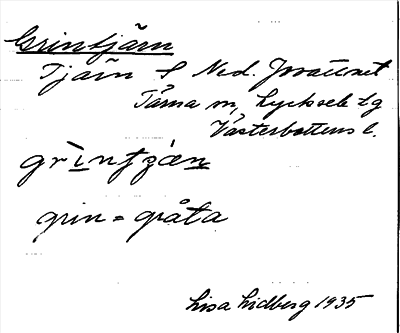 Grintjärn
Tjärn S Ned. Jovattnet
Tärna sn, Lycksele tg
Västerbottens l.
grìntjæ̀n
grin = gråta
Lisa Lidberg 1935